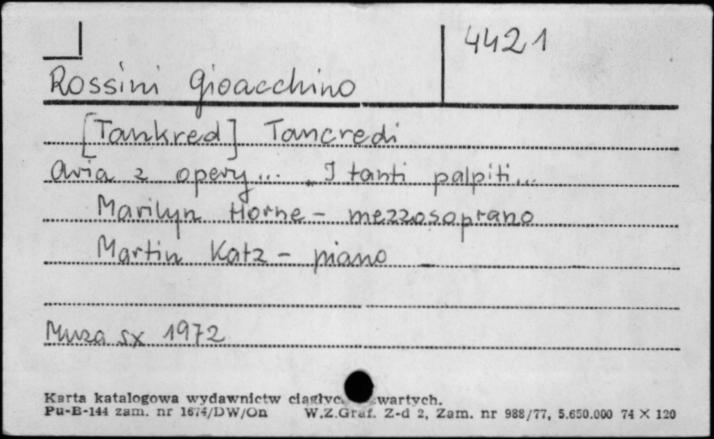 4421
Rossini Gioacchino
[Tankred] Tancredi
Aria z opery... „I tanti palpiti...
Marilyn Horne - mezzosoprano
Martin Katz - piano
Muza sx 1972
Karta katalogowa wydawnictw wartych.
Pu-B-144 zam. nr 1674/DW/On W.Z.Graf. Z-d 2, Zam. nr 988/77, 5.650.000 74 X 120